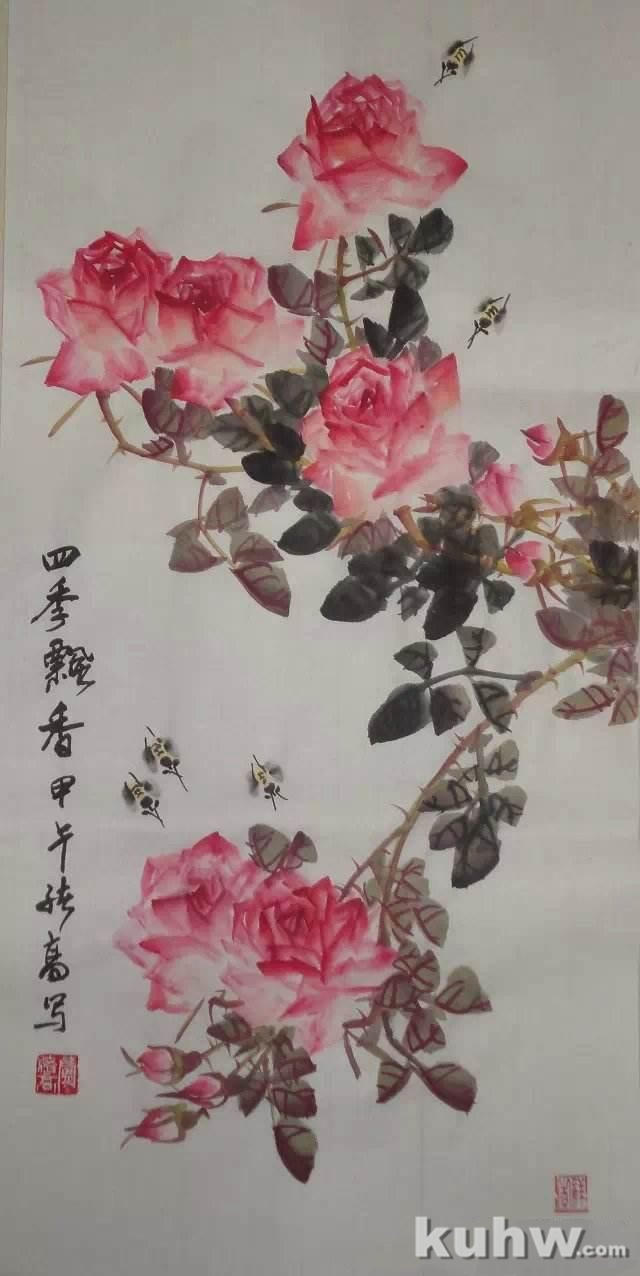 四季飘香甲午 高写
kuhw.com